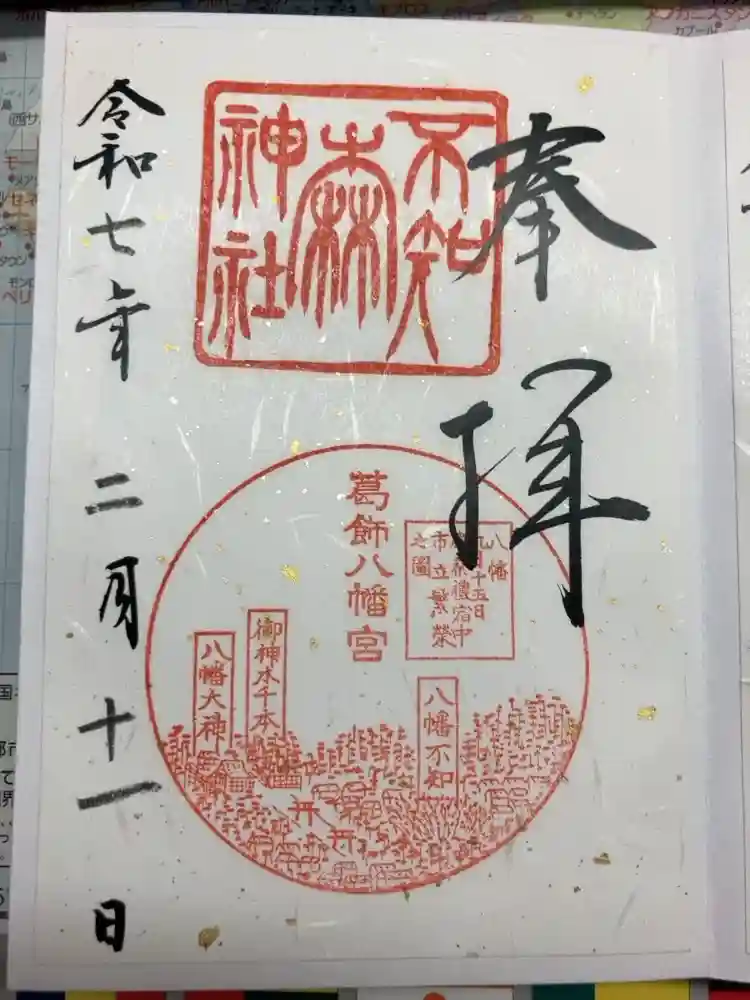 奉拝
不知
森
神社
葛飾八幡宮
八幡
八月十五日
祭禮宿中
市立繁榮
之圖
八幡不知
御神木千本
八幡大神
令和七年二月十一日